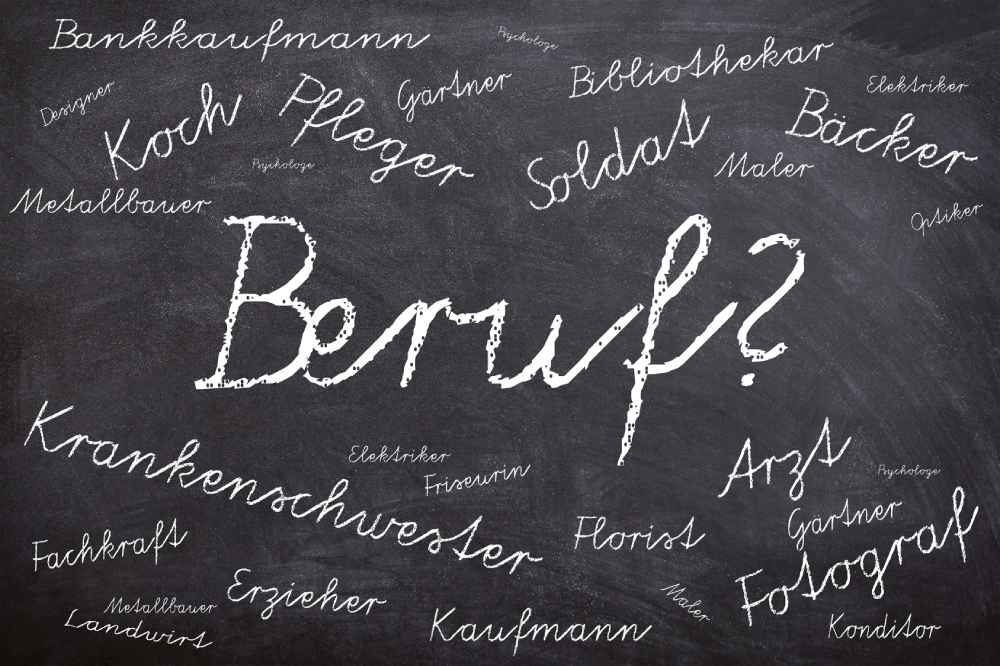 Bankkaufmann
Psychologe
Bibliothekar
Designer
Koch
Pfleger
Gärtner
Elektriker
Soldat
Bäcker
Psychologe
Maler
Metallbauer
Optiker
Beruf?
Krankenschwester
Elektriker
Friseurin
Arzt
Psychologe
Fachkraft
Florist
Gärtner
Fotograf
Erzieher
Metallbauer
Landwirt
Kaufmann
Maler
Konditor